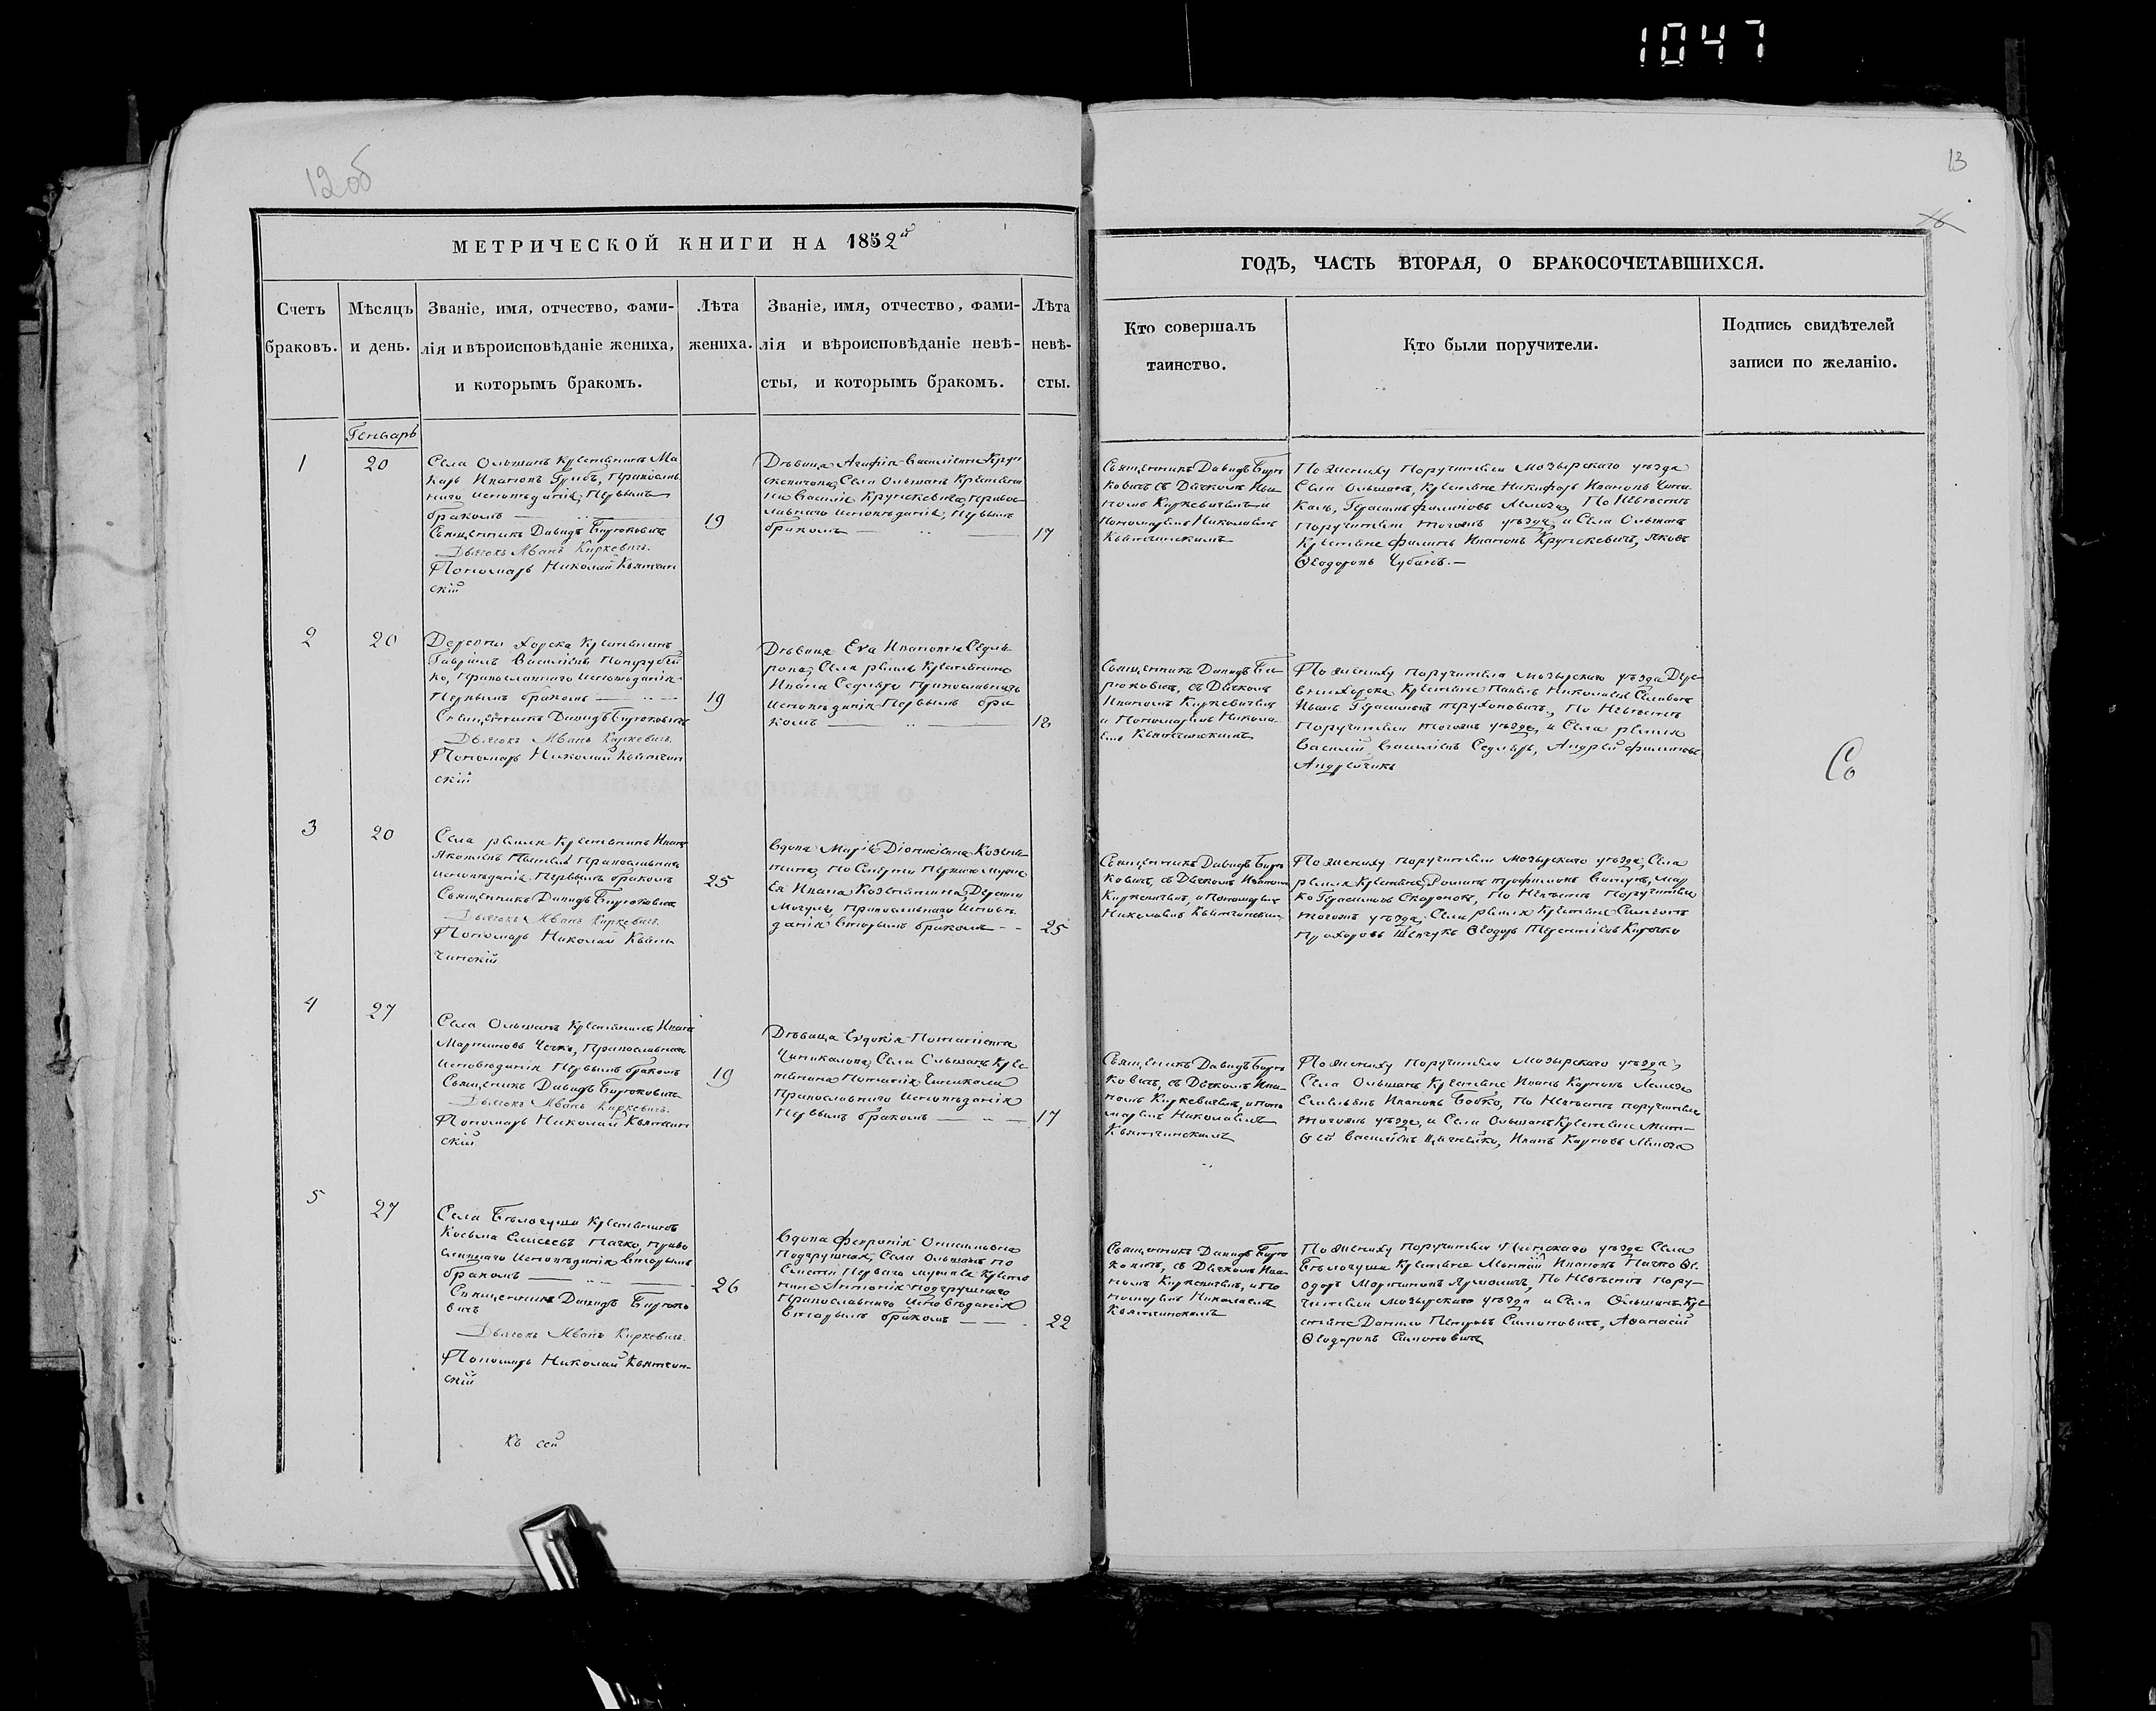 1047
12об
13
МЕТРИЧЕСКОЙ КНИГИ НА 1852й
ГОДЪ, ЧАСТЬ ВТОРАЯ, О БРАКОСОЧЕТАВШИХСЯ.
Счетъ
браковъ.
Мѣсяцъ
и день.
Званіе, имя, отчество, фами-
лія и вѣроисповѣданіе жениха,
и которымъ бракомъ.
Лѣта
жениха.
Званіе, имя, отчество, фами-
лія и вѣроисповѣданіе невѣ-
сты, и которымъ бракомъ.
Лѣта
невѣ-
сты.
Кто совершалъ
таинство.
Кто были поручители.
Подпись свидѣтелей
записи по желанію.
Генварь
1
20
Села Ольшанъ Крестьянинъ Ма
каръ Ивановъ Грибъ, Православ
наго исповѣданія, Первымъ
бракомъ
Священникъ Давидъ Бирюковичъ
Дьячокъ Иванъ Киркевичъ.
Пономарь Николай Квятчин
скій
19
Дѣвица Агафія Васильевна Круп
скевичова, Села Ольшанъ Крестьяни
на Василія Крупскевича, Правос
лавнаго исповѣданія, Первымъ
бракомъ
17
Священникъ Давидъ Бирю
ковичъ съ Дьячкомъ Ива
номъ Киркевичемъ и
Пономаремъ Николаемъ
Квятчинскимъ
По жениху поручители Мозырскаго уѣзда
Села Ольшанъ, Крестьяне Никифоръ Ивановъ Чини
калъ, Герасимъ Филиповъ Лемеза, По Невѣстѣ
поручители тогожъ уѣзда, и Села Ольшанъ
Крестьяне Филипъ Ивановъ Крупскевичъ, Яковъ
Ѳеодоровъ Чубанъ.
2
20
Деревни Хорска Крестьянинъ
Гавріилъ Васильевъ
ко, Православнаго исповѣданія
Первымъ бракомъ
Священникъ Давидъ Бирюковичъ
Дьячокъ Иванъ Киркевичъ.
Пономарь Николай Квятчин
скій
19
Дѣвица Ева Ивановна Седля
рова, Села Ремля Крестьянина
Ивана Седляра Православнаго
исповѣданія Первымъ бра
комъ
18
Священникъ Давидъ Би-
рюковичъ, съ Дьячкомъ
Иваномъ Киркевичемъ
и Пономаремъ Никола-
емъ Квятчинскимъ
По жениху поручители Мозырскаго уѣзда Дере-
вни Хорска Крестьяне Павелъ Николаевъ
Иванъ Герасимовъ Трухоновичъ, По Невѣстѣ
Поручители тогожъ уѣзда, и Села Ремля
Василій Васильевъ Седляръ, Андрей Филиповъ
Андрейчикъ
Со
3
20
Села Ремля Крестьянинъ Иванъ
Яковлевъ Православнаго
исповѣданія Первымъ бракомъ
Священникъ Давидъ Бирюковичъ
Дьячокъ Иванъ Киркевичъ.
Пономарь Николай Квят
чинскій
25
Вдова Марія Діонисіевна Козьми
тина, по Смерти Перваго мужа
Ея Ивана Козьмитина, Деревни
Могуль, Православнаго исповѣ
данія Вторымъ бракомъ
25
Священникъ Давидъ Бирю
ковичъ, съ Дьячкомъ Иваномъ
Киркевичемъ, и Пономаремъ
Николаемъ Квятчинским
По жениху поручители Мозырскаго уѣзда, Села
Ремля Крестьяне, Романъ Трофимовъ Мар
ко Герасимовъ По Невѣстѣ Поручители
тогожъ уѣзда, Села Ремля Крестьяне Симеонъ
Прохоровъ Шевчукъ Ѳеодоръ Терентіевъ Кирочко
4
27
Села Ольшанъ Крестьянинъ Иванъ
Мартиновъ Чечко, Православнаго
исповѣданія Первымъ бракомъ
Священникъ Давидъ Бирюковичъ
Дьячокъ Иванъ Киркевичъ.
Пономарь Николай Квятчин
скій
19
Дѣвица Евдокія Потапіевна
Чиникалова, Села Ольшанъ Крес-
тьянина Потапія Чиникала
Православнаго исповѣданія
Первымъ бракомъ
17
Священникъ Давидъ Бирю
ковичъ, съ Дьячкомъ Ива-
номъ Киркевичемъ, и Поно
маремъ Николаемъ
Квятчинскимъ
По жениху поручители Мозырскаго уѣзда,
Села Ольшанъ Крестьяне Иванъ Карповъ Лемеза
Емельянъ Ивановъ Бобко, По Невѣстѣ поручители
тогожъ уѣзда, и Села Ольшанъ Крестьяне Мат-
ѳей Васильевъ Иванъ Карповъ Лемеза
5
27
Села Бѣлогуши Крестьянинъ
Косьма Елисеевъ Пачко, Право
славнаго исповѣданія Вторымъ
бракомъ
Священникъ Давидъ Бирюко
вичъ
Дьячокъ Иванъ Киркевичъ.
Пономарь Николай Квятчин-
скій
26
Вдова Февронія
Подгрушная, Села Ольшанъ по
Смерти Перваго мужа Ея Кресть
нина Антонія Подгрушнаго
Православнаго исповѣданія
Вторымъ бракомъ
22
Священникъ Давидъ Бирю
ковичъ, съ Дьячкомъ Ива-
номъ Киркевичемъ, и По
номаремъ Николаемъ
Квятчинскимъ
По жениху поручители Пинскаго уѣзда Села
Бѣлогуши Крестьяне Ивановъ Пачко Ѳе-
одоръ Мартиновъ Ярмоличъ, По Невѣстѣ пору-
чители Мозырскаго уѣзда и Села Ольшанъ Кре
стьяне Данило Петровъ Симоновичъ, Аѳанасій
Ѳеодоровъ Симоновичъ
Къ сей